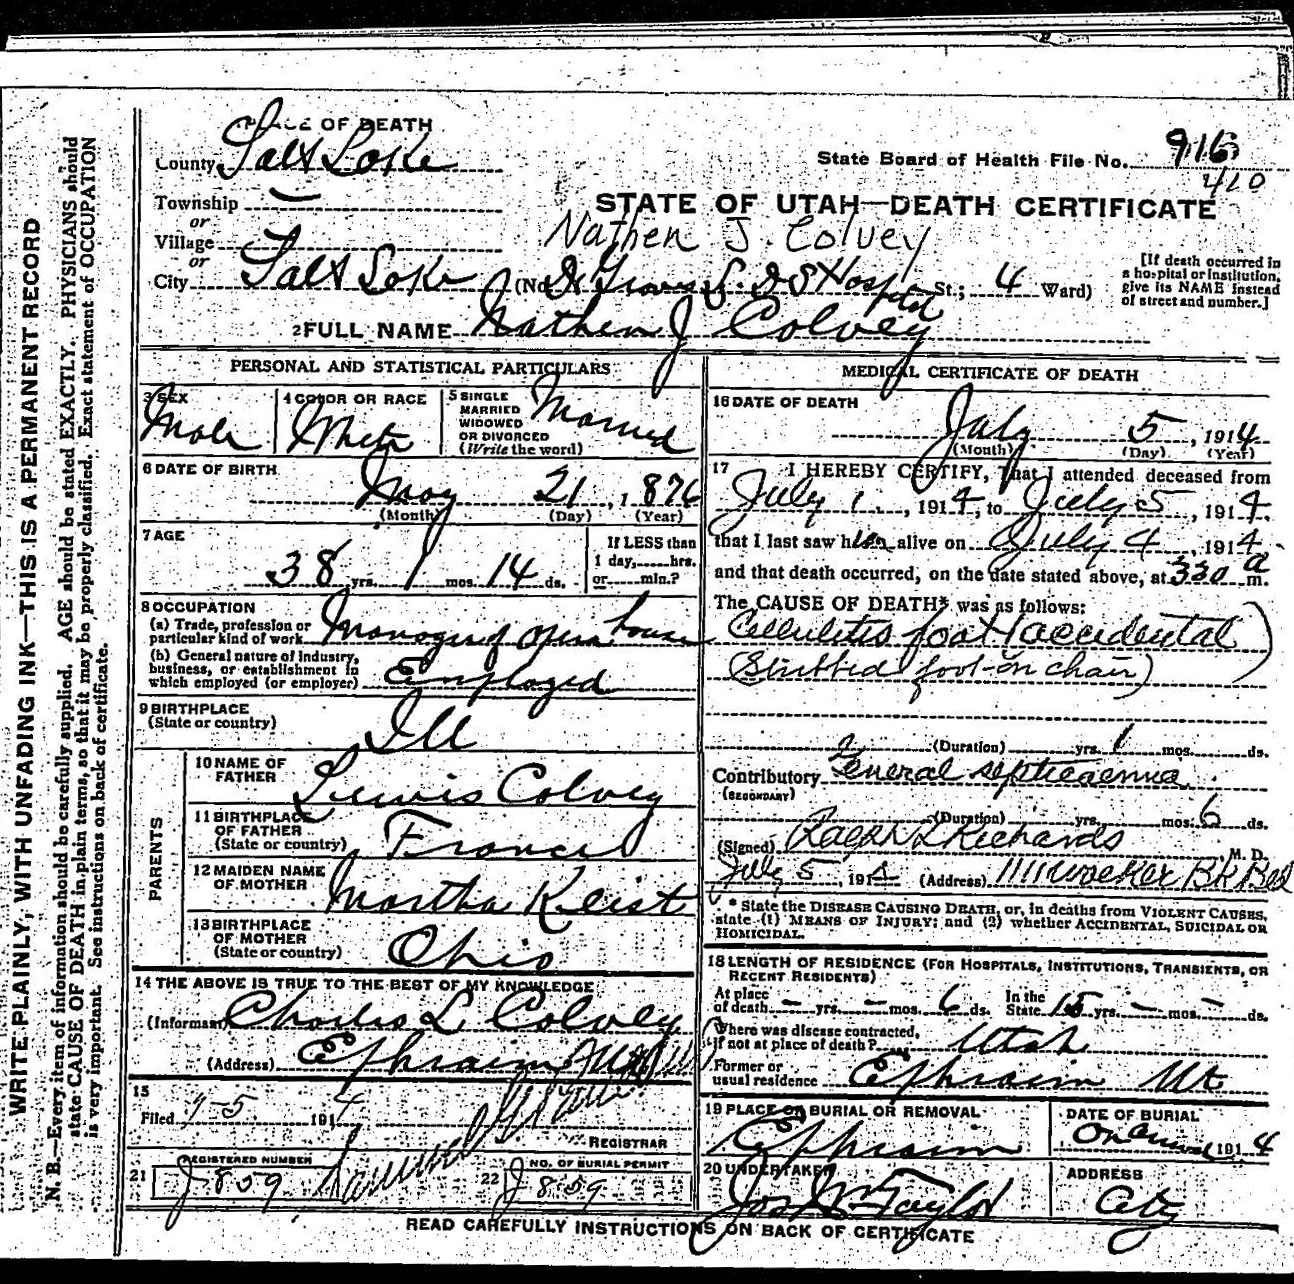 PLACE OF DEATH
County Salt Lake
State Board of Health File No. 916
410
Township —
STATE OF UTAH—DEATH CERTIFICATE
or
Nathen J. Colvey
Village
or
City Salt Lake (No. Dr Groves L. D S Hospital St.; 4 Ward)
[If death occurred in
a hospital or institution,
give its NAME instead
of street and number.]
2 FULL NAME Nathen J Colvey
PERSONAL AND STATISTICAL PARTICULARS
3 SEX
Male
4 COLOR OR RACE
White
5 SINGLE
MARRIED
WIDOWED
OR DIVORCED
(Write the word)
Married
6 DATE OF BIRTH
May 21, 1876
(Month) (Day) (Year)
7 AGE
38 yrs. 1 mos. 14 ds.
If LESS than
1 day, hrs.
or min.?
8 OCCUPATION
(a) Trade, profession or
particular kind of work Manager of Opera house
(b) General nature of industry,
business, or establishment in
which employed (or employer) Employed
9 BIRTHPLACE
(State or country) Ill
PARENTS
10 NAME OF
FATHER Lewis Colvey
11 BIRTHPLACE
OF FATHER
(State or country) France
12 MAIDEN NAME
OF MOTHER Martha Kleist
13 BIRTHPLACE
OF MOTHER
(State or country) Ohio
14 THE ABOVE IS TRUE TO THE BEST OF MY KNOWLEDGE
(Informant) Charles L Colvey
(Address) Ephraim
15
Filed 7-5 1914
REGISTRAR
21 REGISTERED NUMBER
J 859
22 NO. OF BURIAL PERMIT
J 859
MEDICAL CERTIFICATE OF DEATH
16 DATE OF DEATH
July 5, 1914
(Month) (Day) (Year)
17 I HEREBY CERTIFY, That I attended deceased from
July 1, 1914, to July 5, 1914.
that I last saw him alive on July 4, 1914.
and that death occurred, on the date stated above, at 330 a m.
The CAUSE OF DEATH* was as follows:
Cellulitis foot (accidental)
(Stubbed foot on chair)
(Duration) yrs. 1 mos. ds.
Contributory General septicaemia
(SECONDARY)
(Duration) yrs. mos. 6 ds.
(Signed) Ralph L Richards M. D.
July 5, 1914 (Address) 1111 Walker Bk Bld
* State the DISEASE CAUSING DEATH, or, in deaths from VIOLENT CAUSES,
state (1) MEANS OF INJURY; and (2) whether ACCIDENTAL, SUICIDAL OR
HOMICIDAL.
18 LENGTH OF RESIDENCE (FOR HOSPITALS, INSTITUTIONS, TRANSIENTS, OR
RECENT RESIDENTS)
At place
of death — yrs. — mos. 6 ds.
In the
State 15 yrs. — mos. — ds.
Where was disease contracted,
if not at place of death? Utah
Former or
usual residence Ephraim Ut
19 PLACE OF BURIAL OR REMOVAL
Ephraim
DATE OF BURIAL
1914
20 UNDERTAKER
Jos Wm Taylor
ADDRESS
City
READ CAREFULLY INSTRUCTIONS ON BACK OF CERTIFICATE
WRITE PLAINLY, WITH UNFADING INK—THIS IS A PERMANENT RECORD
N. B.—Every item of information should be carefully supplied. AGE should be stated EXACTLY. PHYSICIANS should
state CAUSE OF DEATH in plain terms, so that it may be properly classified. Exact statement of OCCUPATION
is very important. See instructions on back of certificate.